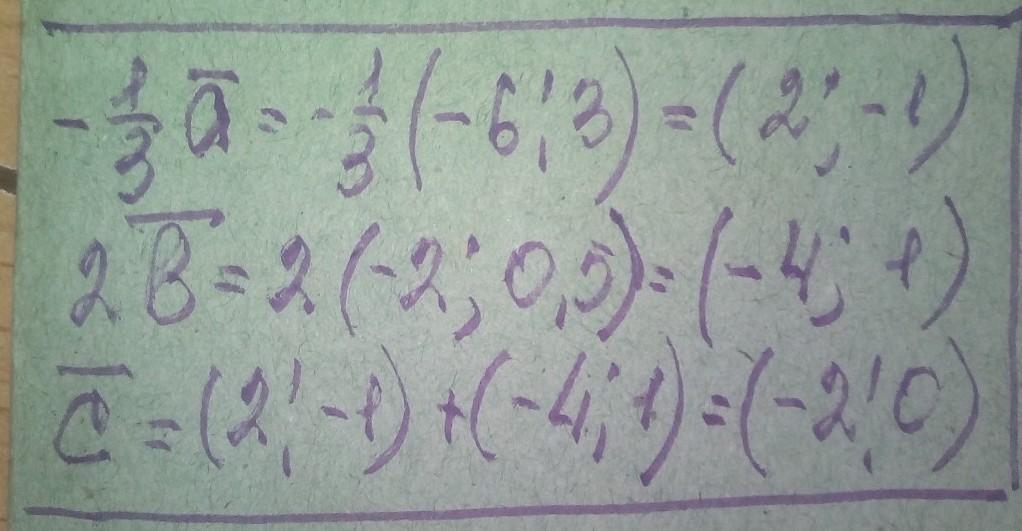 -1/3 a̅ = -1/3 (-6; 3) = (2; -1)
2 B̅ = 2 (-2; 0,5) = (-4; 1)
C̅ = (2; -1) + (-4; 1) = (-2; 0)